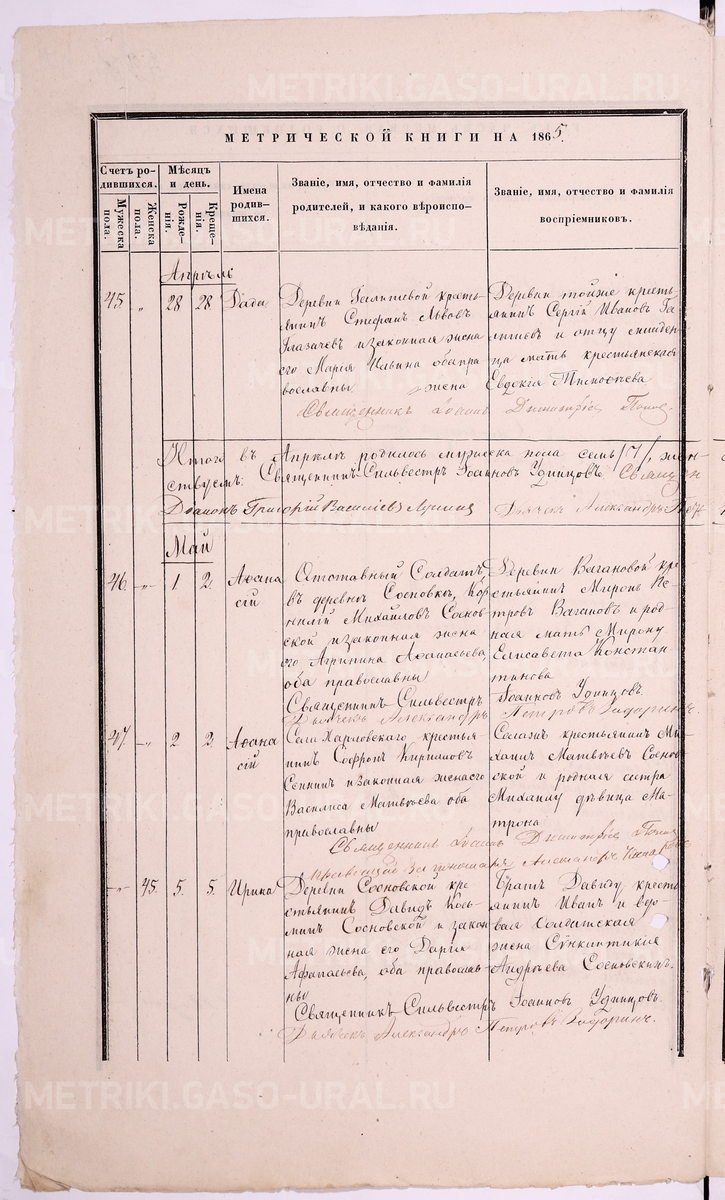 МЕТРИЧЕСКОЙ КНИГИ НА 1865.
Счетъ ро-
дившихся.
Мужеска
пола.
Женска
пола.
Мѣсяцъ
и день.
Рожде-
нія.
Креще-
нія.
Имена
родив-
шихся.
Званіе, имя, отчество и фамилія
родителей, и какого вѣроиспо-
вѣданія.
Званіе, имя, отчество и фамилія
воспріемниковъ.
Апрѣль
45 „ 28 28 Дада
Деревни кресть-
янинъ Стефанъ Львовъ
Глазачевъ и законная жена
его Марія Ильина оба пра
вославны
Деревни тойже кресть-
янинъ Сергій Ивановъ
и отцу
мать крестьянская
жена Евдокія
Священникъ Іоаннъ Димитріевъ Попов
Итого въ Апрѣлѣ родилось мужеска пола семь /7/, жен
Священникъ Сильвестръ Іоанновъ Удинцовъ Священ
Діаконъ Григорій Василіевъ
Дьячекъ Александръ
Май
46 „ 1 2. Аѳана
сій
Отставный Солдатъ
въ деревнѣ Сосновкѣ, Кор
нилій Михайловъ Соснов
ской и законная жена
его Агрипина Аѳанасьева,
оба православны
Деревни Вагановой кре
стьянинъ Миронъ Пе-
тровъ Вагановъ и род-
ная мать Мирону
Елисавета Констан
тинова
Священникъ Сильвестръ Іоанновъ Удинцовъ.
Дьячекъ Александръ Петровъ
47 „ 2 2. Аѳана
сій
Села Харловскаго крестья
нинъ Софронъ Кириловъ
Сеннинъ и законная жена его
Василиса Матвѣева оба
православны
крестьянинъ Ми-
хаилъ Матвѣевъ Соснов
ской и родная сестра
Михаилу дѣвица Ма-
трона
Священникъ Іоаннъ Димитріевъ Попов
за пономаря Александръ
„ 45. 5. 5. Ирина
Деревни Сосновской кре
стьянинъ Давидъ Кось-
минъ Сосновской и закон
ная жена его Дарія
Афанасьева, оба православ
ны
Братъ Давиду кресть
янинъ Иванъ и вдо-
вая Солдатская
жена Сѵнклитикія
Андреева Сосновскихъ.
Священникъ Сильвестръ Іоанновъ Удинцовъ.
Дьячекъ Александръ Петровъ
METRIKI.GASO-URAL.RU